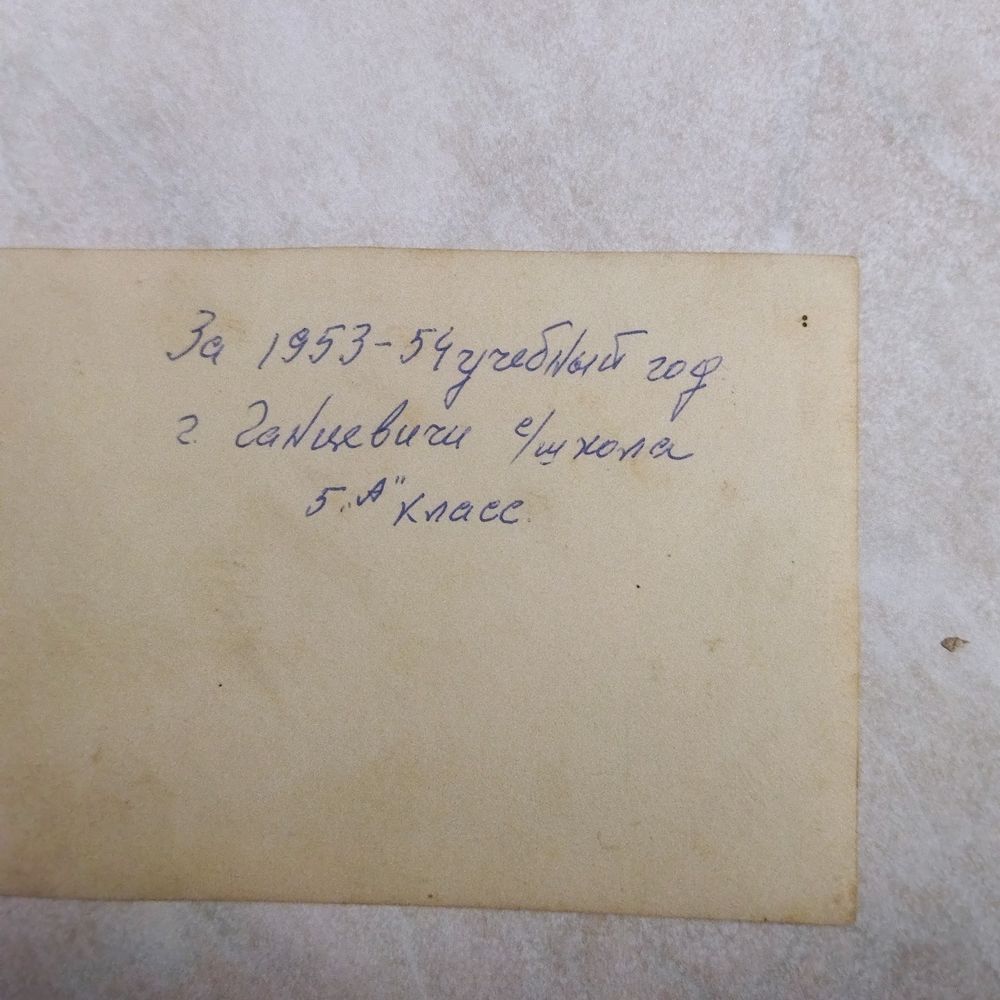 За 1953-54 учебный год
г. Ганцевичи с/школа
5 „А" класс.